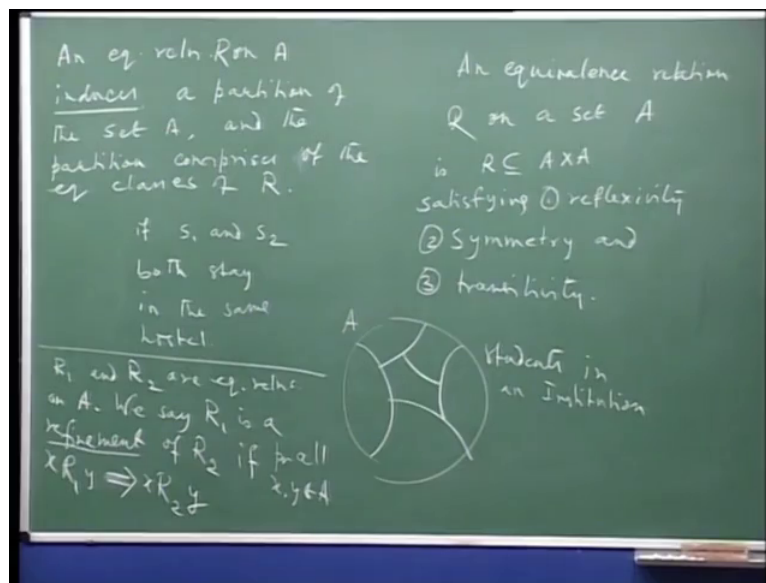 An eq. reln. R on A
induces a partition of
the set A, and the
partition comprises of the
eq classes of R.
if S₁ and S₂
both stay
in the same
hostel.
R₁ and R₂ are eq. relns.
on A. We say R₁ is a
refinement of R₂ if for all
xR₁y ⟹ xR₂y x, y ∈ A
An equivalence relation
R on a set A
is R ⊆ A × A
satisfying ① reflexivity
② Symmetry and
③ transitivity.
A
students in
an Institution